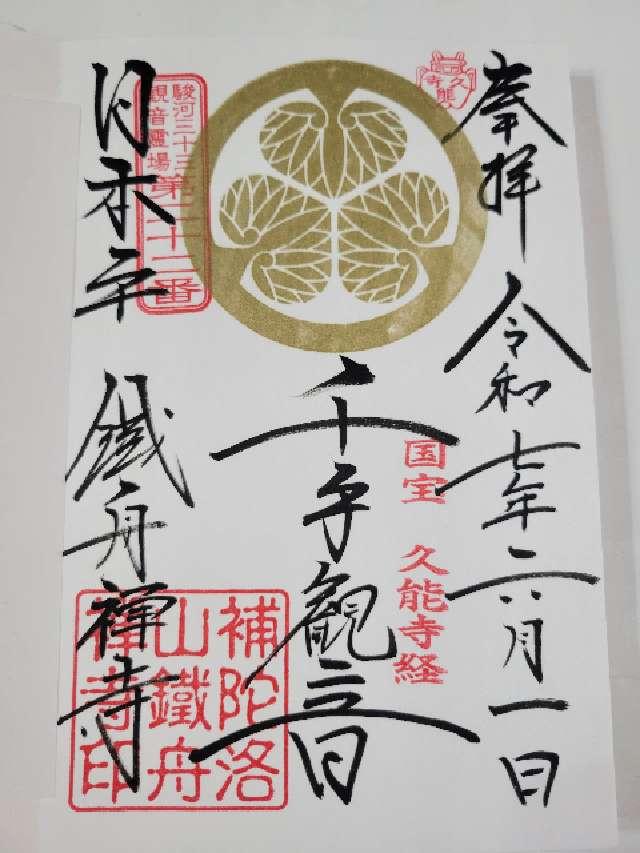 奉拝
令和七年六月一日
久能寺
国宝 久能寺経
千手観音
駿河三十三
観音霊場
第二十二番
日本平
鐵舟禅寺
補陀洛
山鐵舟
禅寺印